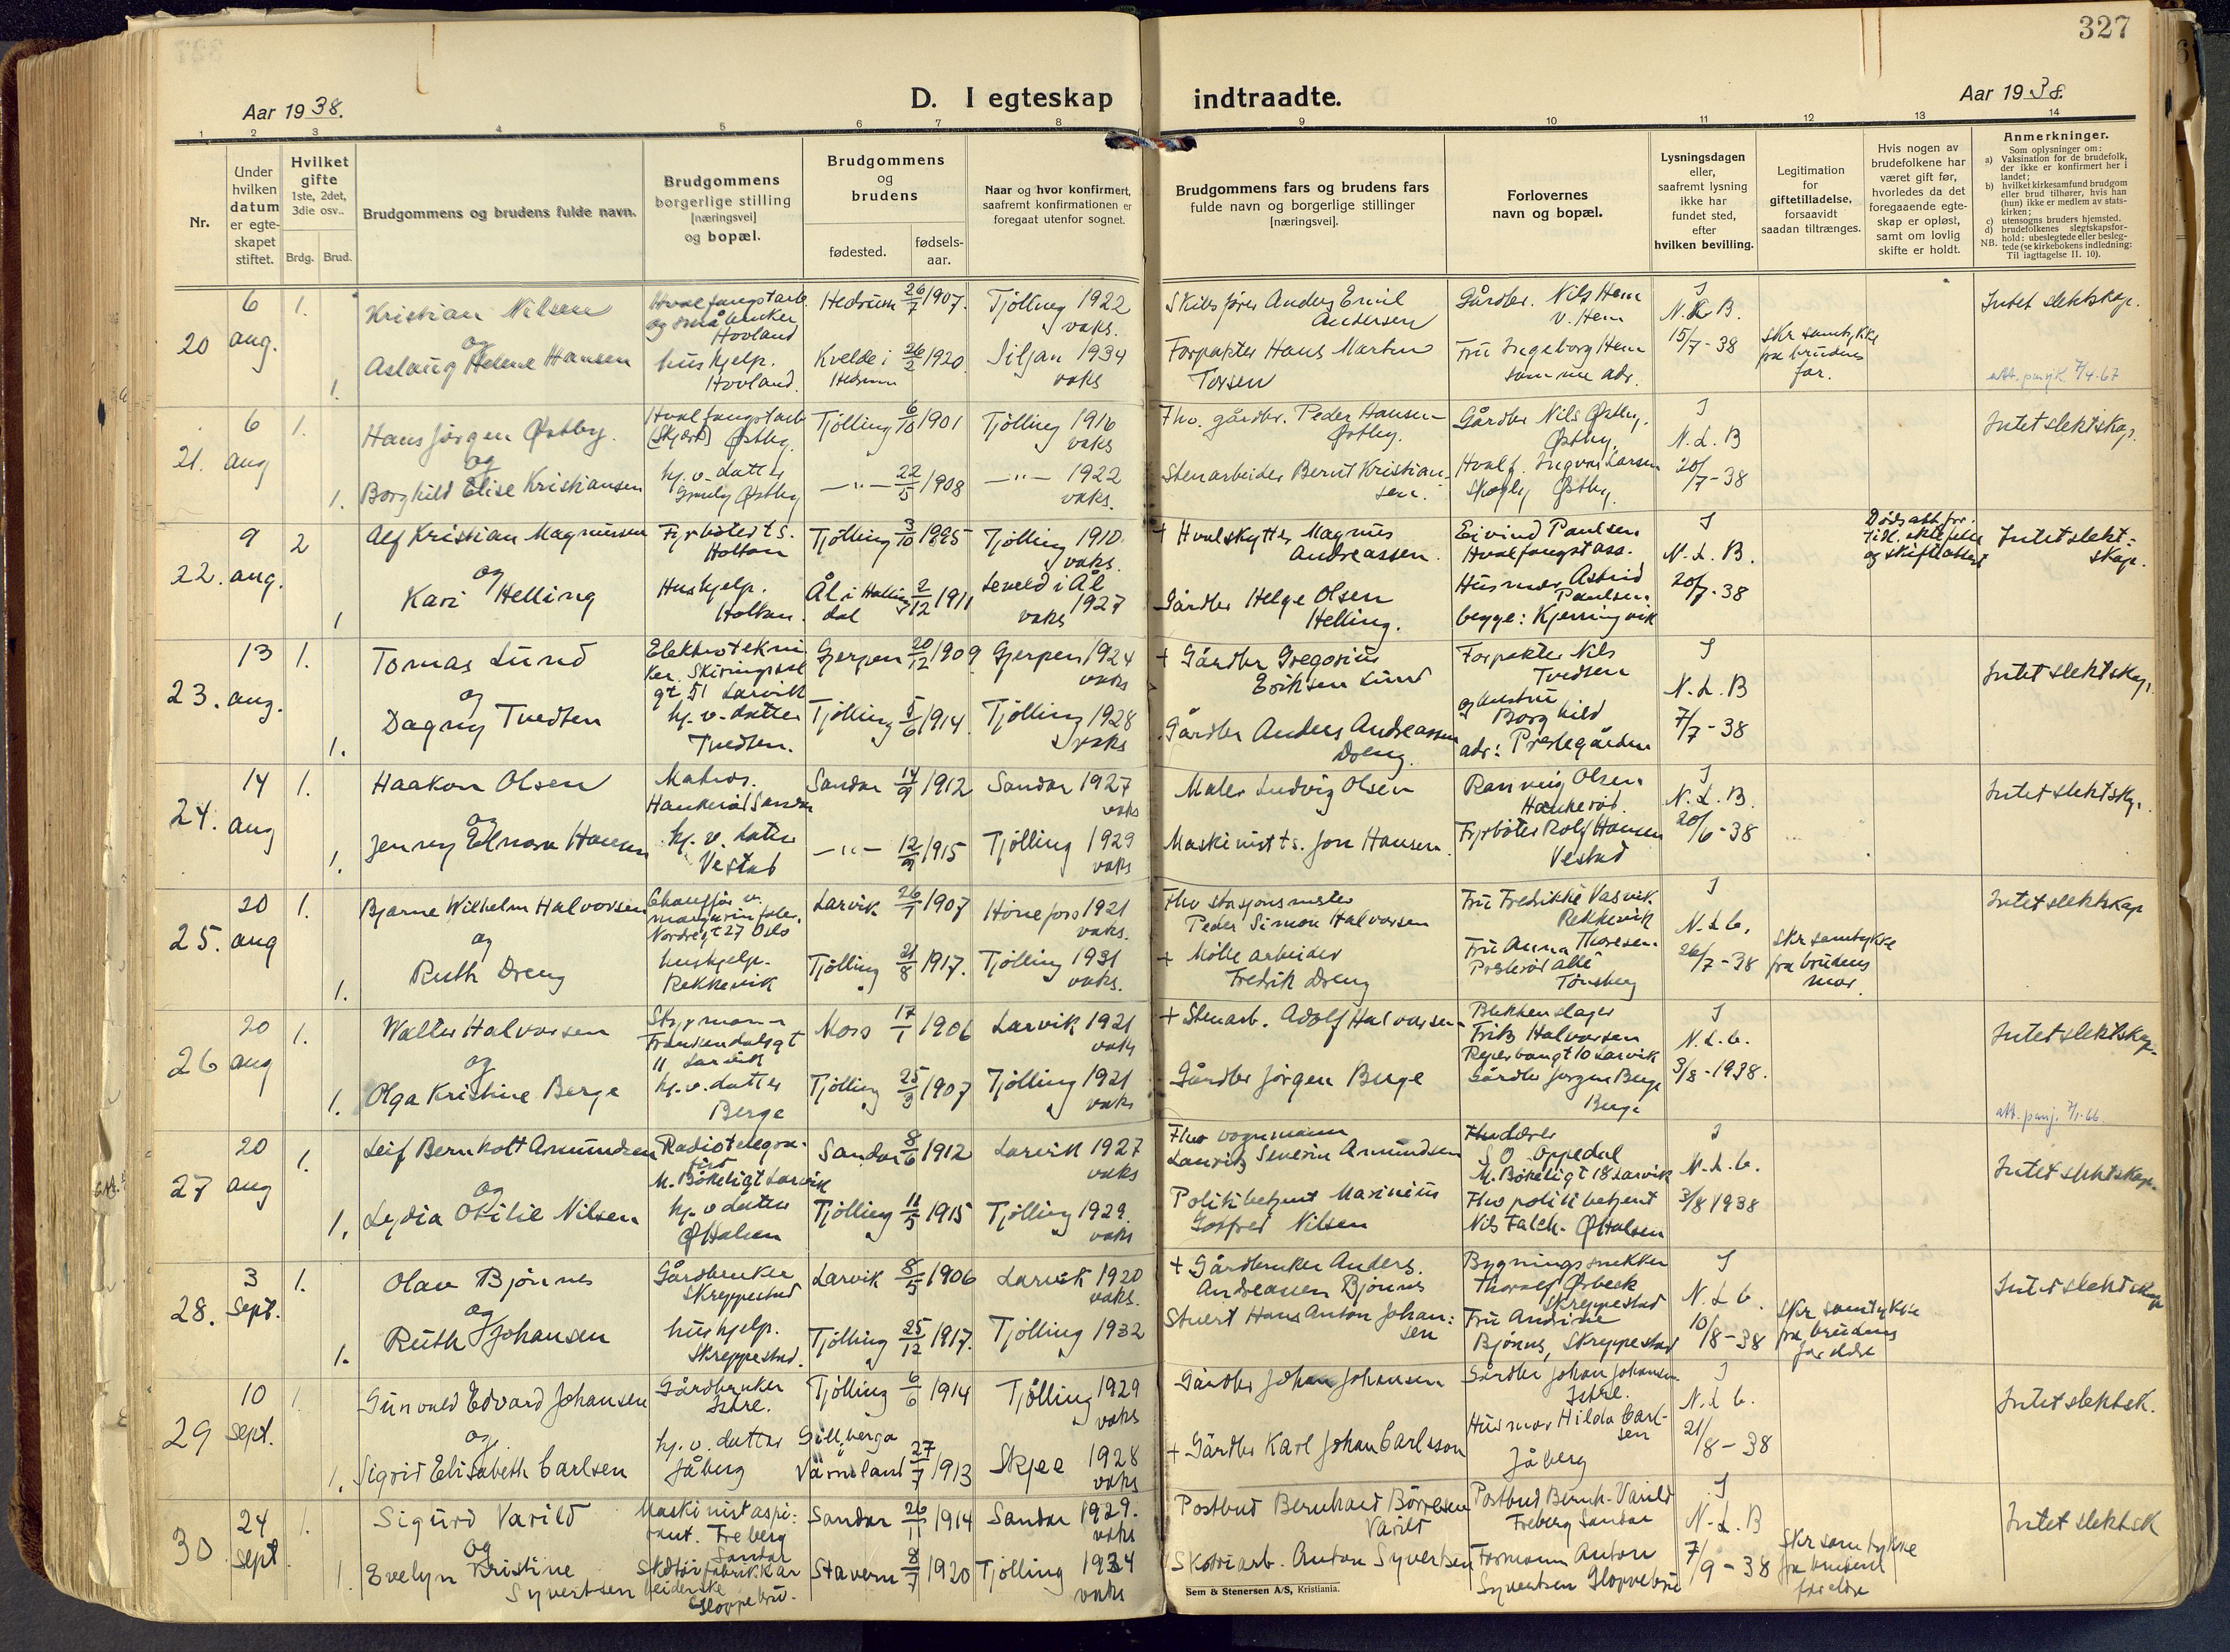 327
Aar 1938.
D. I egteskap indtraadte.
Aar 1938.
1 2 3 4 5 6 7 8 9 10 11 12 13 14
Nr.
Under hvilken datum er egteskapet stiftet.
Hvilket gifte 1ste, 2det, 3die osv..
Brdg. Brud.
Brudgommens og brudens fulde navn.
Brudgommens borgerlige stilling [næringsvei] og bopæl.
Brudgommens og brudens
fødested.
fødsels-aar.
Naar og hvor konfirmert, saafremt konfirmationen er foregaat utenfor sognet.
Brudgommens fars og brudens fars fulde navn og borgerlige stillinger [næringsvei].
Forlovernes navn og bopæl.
Lysningsdagen eller, saafremt lysning ikke har fundet sted, efter hvilken bevilling.
Legitimation for giftetilladelse, forsaavidt saadan tiltrænges.
Hvis nogen av brudefolkene har været gift før, hvorledes da det foregaaende egteskap er opløst, samt om lovlig skifte er holdt.
Anmerkninger.
Som oplysninger om:
a) Vaksination for de brudefolk, der ikke er konfirmert her i landet;
b) hvilket kirkesamfund brudgom eller brud tilhører, hvis han (hun) ikke er medlem av statskirken;
c) utensogns bruders hjemsted.
d) brudefolkenes slegtskapsforhold: ubeslegtede eller beslegtede (se kirkebokens indledning:
NB. Til iagttagelse II. 10).
20 6 aug. 1. Kristian Nilsen
Hvalfangstarb. og småbruker Hovland
Hedrum 26/7 1907. Tjølling 1922 vaks.
Skibsfører Anders Emil Andersen
Gårdbr. Nils Hem v. Hem
J N.L.B. 15/7-38
Skr samtykke fra brudens far.
Intet slektskap.
og
1. Aslaug Helene Hansen
hushjelp. Hovland.
Kvelde i Hedrum 26/2 1920. Siljan 1934 vaks
Forpakter Hans Martin Torsen
Fru Ingeborg Hem samme adr.
21. 6 aug 1. Hans Jørgen Østby.
Hvalfangstarb (Skjærs) Østby.
Tjølling 6/10 1901 Tjølling 1916 vaks
Fhv. gårdbr. Peder Hansen Østby.
Gårdbr Nils Østby. Østby.
J N.L.B 20/7-38
Intet slektskap.
og
1. Borghild Elise Kristiansen
hj.v. datter Østby
—"— 22/5 1908 —"— 1922 vaks.
Stenarbeider Bernt Kristiansen.
Hvalf. Ingvar Larsen Skogly Østby.
22. 9 aug. 2 Alf Kristian Magnussen
Fyrbøter t s. Holtan
Tjølling 3/10 1895 Tjølling 1910. vaks.
+ Hvalskytter Magnus Andreassen.
Eivind Paulsen Hvalfangstass.
J N.L.B. 20/7-38
Intet slektskap.
og
1 Kari Helling
Hushjelp. Holtan.
Ål i Hallingdal 2/12 1911 Leveld i Ål 1927 vaks
Gårdbr Helge Olsen Helling.
Husmor Astrid Paulsen. begge: Kjerringvik
23. 13 aug. 1. Tomas Lund
Elektrotekniker. Skiringssal gt 51 Larvik
Gjerpen 20/12 1909 Gjerpen 1924 vaks
+ Gårdbr Gregorius Eriksen Lund
Forpakter Nils Tvedten
J N.L.B 7/7-38
Intet slektskap.
og
1. Dagny Tvedten
hj.v. datter Tvedten.
Tjølling 5/6 1914. Tjølling 1928 vaks
Gårdbr Anders Andreassen Dreng.
og hustru Borghild adr: Prestegården
24. 14 aug 1. Haakon Olsen
Matros. Haukerød Sandar
Sandar 14/9 1912 Sandar 1927 vaks
Maler Ludvig Olsen
Rannveig Olsen Haukerød.
J N.L.B. 20/6-38
Intet slektskp.
og
1. Jenny Elnora Hansen
hj.v. datter Vestad
—"— 12/9 1915 Tjølling 1929 vaks
Maskinist t s. Jon Hansen.
Fyrbøter Rolf Hansen Vestad
25. 20 aug 1. Bjarne Wilhelm Halvorsen
Chauffør v. margarinfabr. Nordregt 27 Oslo
Larvik 26/1 1907 Hønefoss 1921 vaks.
Fhv stasjonsmester Peder Simon Halvorsen
Fru Fredrikke Vasvik. Rekkevik
J N.L.b. 26/7-38
Skr samtykke fra brudens mor.
Intet slektskap
og
1. Ruth Dreng
hushjelp. Rekkevik
Tjølling 21/8 1917. Tjølling 1931 vaks.
+ Mølle arbeider Fredrik Dreng
Fru Anna Thoresen. Presterød allé Tønsberg
26 20 aug 1. Walter Halvorsen
Styrmann Frankendalsgt 11 Larvik
Moss 17/1 1906 Larvik 1921 vaks
+ Stenarb. Adolf Halvorsen
Blikkenslager Fritz Halvorsen Reperbangt 10 Larvik
J N.L.b. 3/8-1938.
Intet slektskap.
og
1. Olga Kristine Berge
hj.v. datter Berge
Tjølling 25/3 1907 Tjølling 1921 vaks
Gårdbr Jørgen Berge
Gårdbr Jørgen Berge Berge
27 20 aug 1. Leif Bernholt Amundsen
Radiotelegrafist M. Bøkeligt Larvik
Sandar 8/6 1912 Larvik 1927 vaks
Fhv vognmann Lauritz Severin Amundsen
S O Oppedal M. Bøkeligt 18 Larvik
J N.L.b. 3/8 1938
Intet slektskap.
og
1. Lydia Otilie Nilsen
hj.v datter Ø Halsen
Tjølling 11/5 1915 Tjølling 1929. vaks
Politibetjent Marinius Gotfred Nilsen
Fhv politibetjent Nils Falch. Ø Halsen
28. 3 Sept. 1. Olav Bjønnes
Gårdbruker Skreppestad
Larvik 8/5 1906 Larvik 1920 vaks.
+ Gårdbruker Anders Andreassen Bjønnes
Bygningssnekker Thoralf Ørbeck Skreppestad
J N.L b. 10/8-38
Skr samtykke fra brudens foreldre
Intet slektskap
og
1. Ruth Johansen
hushjelp. Skreppestad.
Tjølling 25/12 1917. Tjølling 1932
Stuert Hans Anton Johansen
Fru Andrine Bjønnes, Skreppestad
29 10 sept. 1. Gunvald Edvard Johansen
Gårdbruker Istre.
Tjølling 6/6 1914 Tjølling 1929 vaks
Gårdbr Johan Johansen
Gårdbr Johan Johansen Istre.
J N.L b. 21/8-38
Intet slektsk.
og
1. Sigrid Elisabeth Carlsen
hj.v. datter Jåberg
Gillberga Värmland 27/7 1913 Skjee 1928 vaks
+ Gårdbr Karl Johan Carlsson
Husmor Hilda Carlsen Jåberg
30 24 sept. 1. Sigurd Varild
Maskinistaspirant. Freberg Sandar
Sandar 26/11 1914 Sandar 1929. vaks
Postbud Bernhard Børresen Varild
Postbud Bernh. Varild Freberg Sandar
J N.L.B 7/9-38
Skr samtykke fra brudens foreldre
Intet slektsk
og
1. Evelyn Kristine Syvertsen
Skotøifabrikkarbeiderske Gloppebrø.
Stavern 8/7 1920 Tjølling 1934 vaks
Skotøiarb. Anton Syvertsen
Formann Anton Syvertsen
Sem & Stenersen A/S, Kristiania.